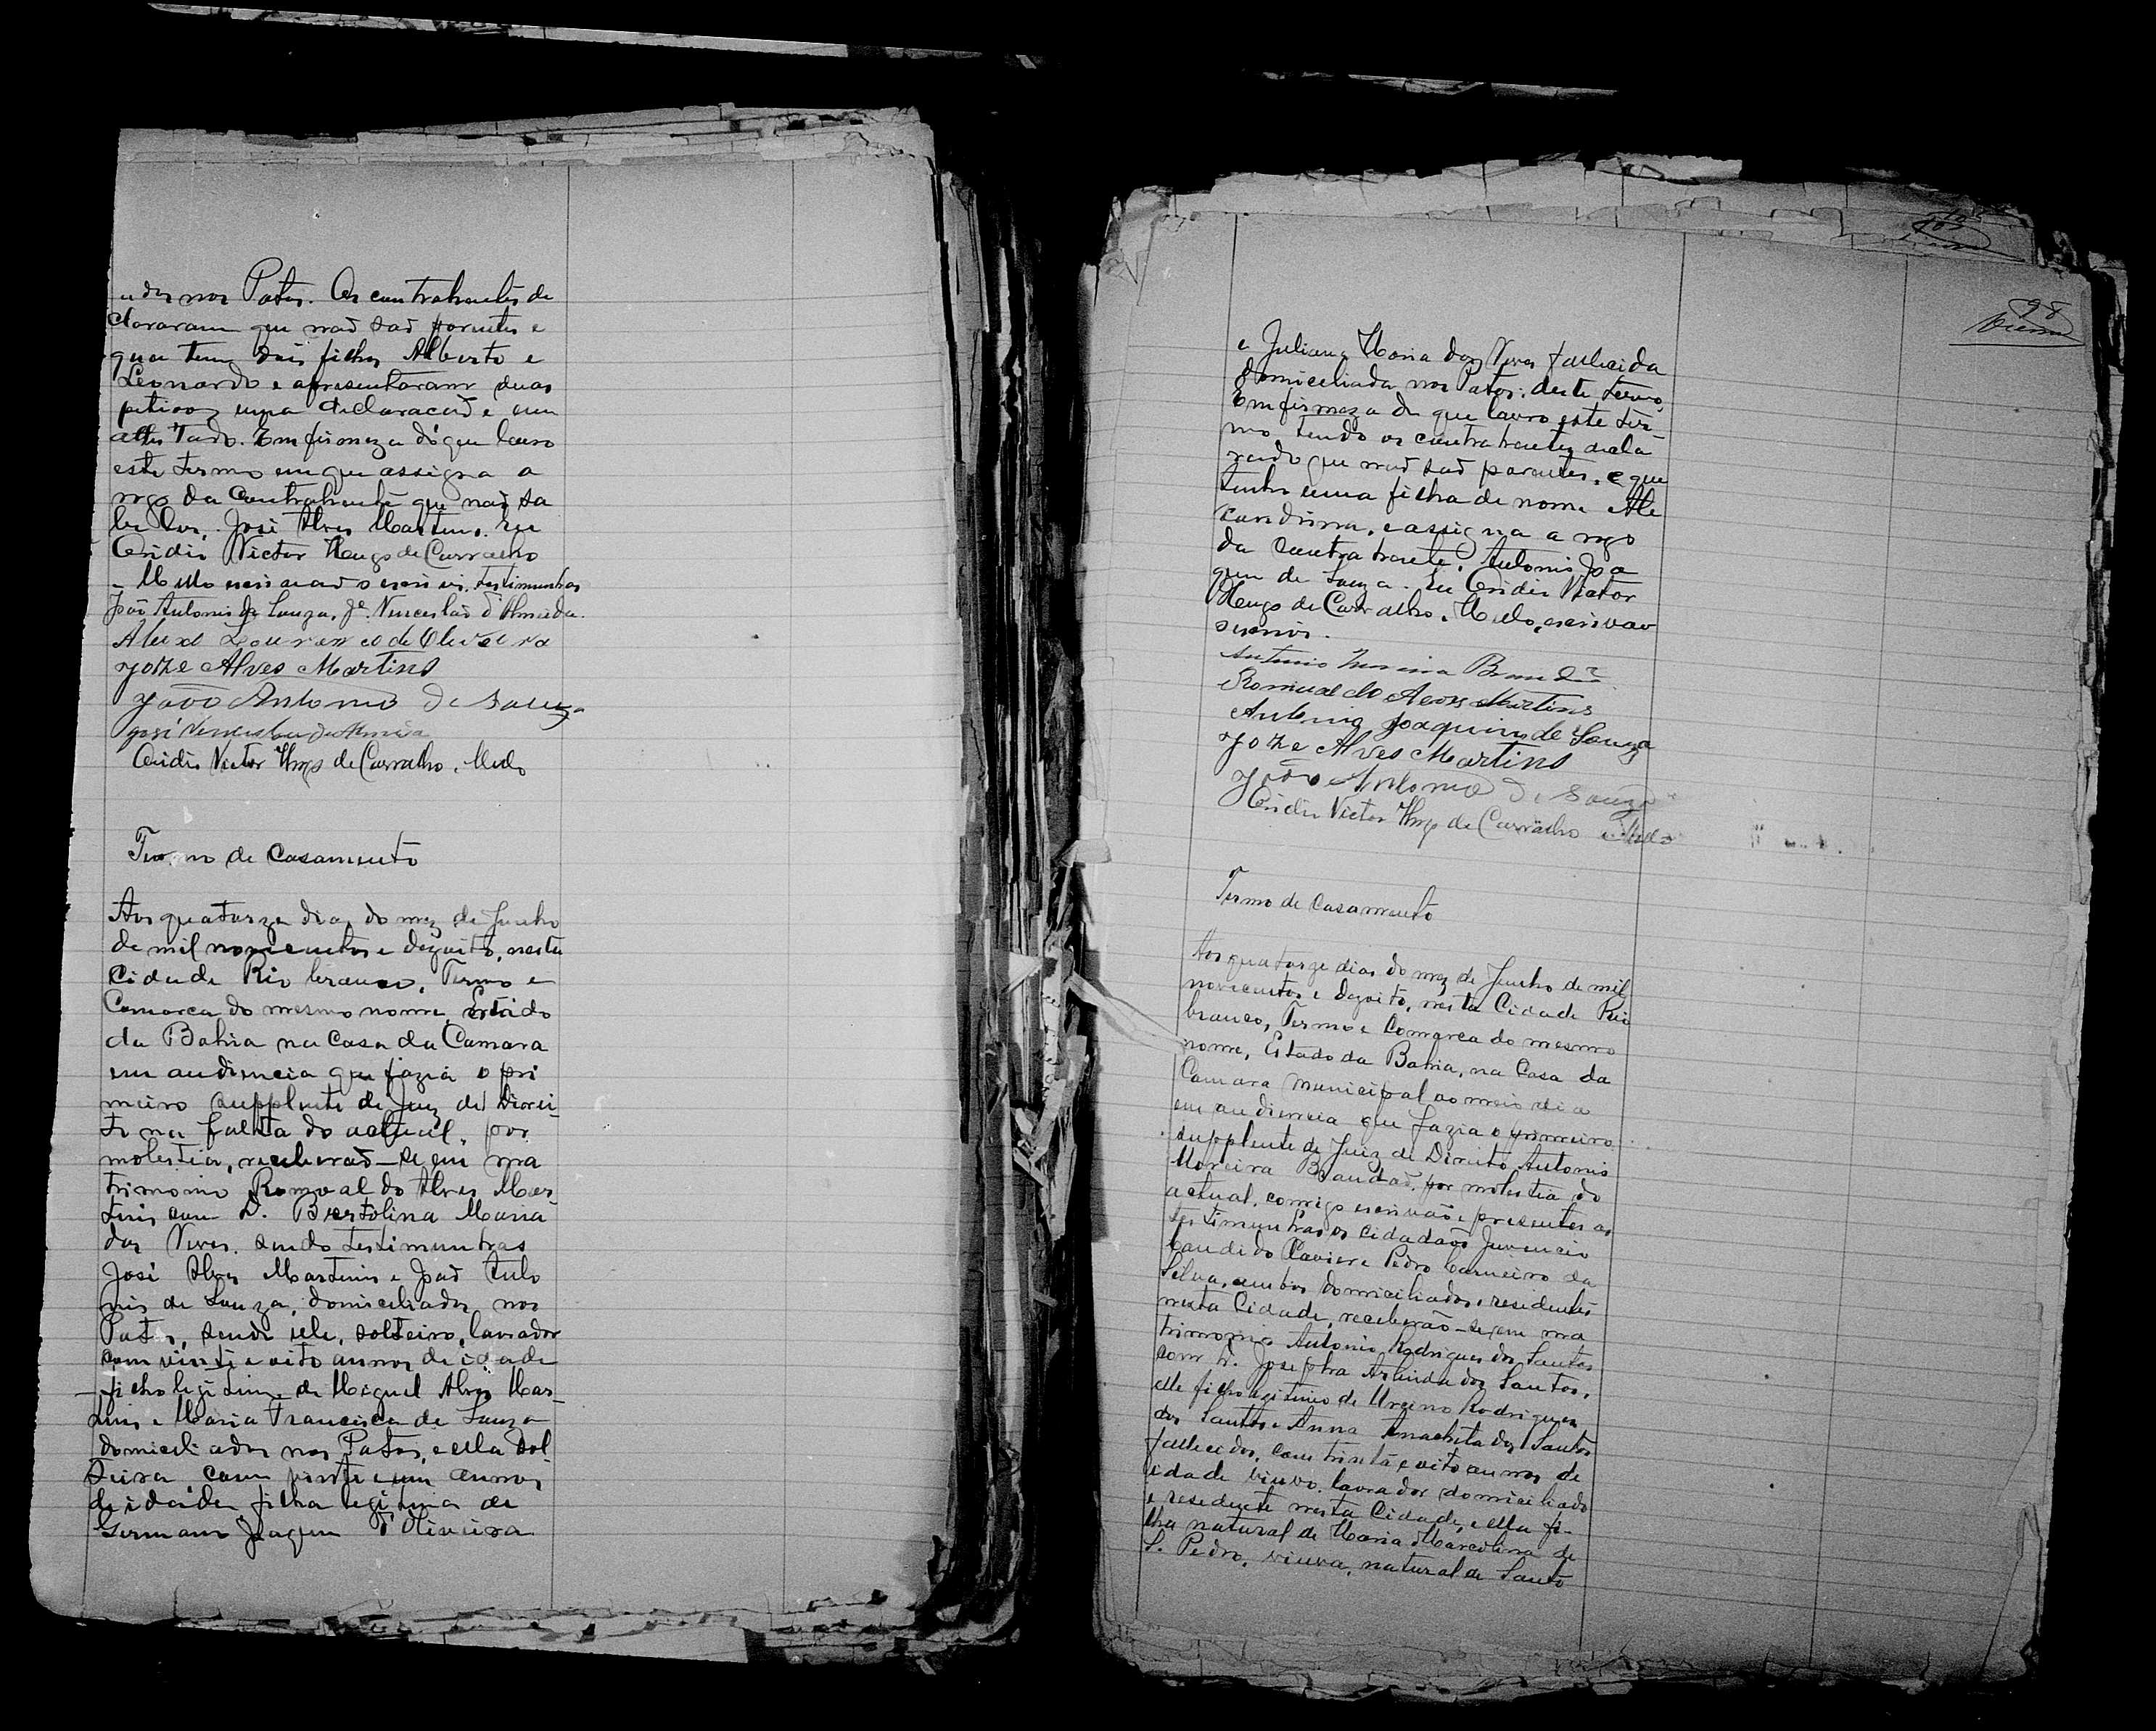 ados nos Patos. Os contrahentes de
clararam que naõ saõ parentes e
que tem dois filhos Alberto e
Leonardo e apresentaram duas
petiçoz uma declaracaõ e um
attes Tado. Em firmeza do que lavro
este termo em que assigna a
rogo da Contrahente que naõ sa
be ler, José Alves Martins. Eu
Ceridiõ Victor Hugo de Carvalho
Mello escrivaõ o escrevi. Testimunhas
João Antonio de Souza, Je. Vincesláo d'Almeida.
Aleixo Lourenço de Oliveira
Joze Alves Martins
João Antonio de Souza
José Vinceslau de Almeida
Ceridiõ Victor Hugo de Carvalho. Mello
Termo de Casamento
Aos quatorze dias do mez de Junho
de mil novecentos e dezoito, nesta
Cidade Rio branco, Termo e
Comarca do mesmo nome, Estado
da Bahia na Casa da Camara
em audiencia que fazia o pri
meiro supplente de Juiz de Direi-
to na falta do actual, por
molestia, receberaõ-se em ma
trimonio Romoaldo Alves Mar-
tins com D. Bertolina Maria
das Neves. sendo testimunhas
José Alves Martins e Joaõ Anto
nio de Souza, domiciliados nos
Patos, sendo ele, solteiro, lavrador
com vinte e oito annos de idade
filho legitimo de Miguel Alves Mar-
tins e Maria Francisca de Souza
domiciliados nos Patos, e ella sol
teira, com vinte e um annos
de idade, filha legitima de
Germano Joaquim d'Oliveira
98
e Juliana Maria das Neves fallecida
domiciliada nos Patos, deste termo,
Em firmeza do que lavro este ter-
mo tendo os contrahentes decla
rado que naõ saõ parentes, e que
tenho uma filha de nome Ale
xandrina, e assigna a rogo
da contrahente, Antonio Joa
quim de Souza. Eu Ceridiõ Victor
Hugo de Carvalho. Mello, escrivaõ
escrevi.
Antonio Moreira Brandão
Romualdo Alves Martins
Antonio Joaquim de Souza
Joze Alves Martins
João Antonio de Souza
Ceridiõ Victor Hugo de Carvalho Mello
Termo de Casamento
Aos quatorze dias do mez de Junho de mil
novecentos e dezoito, nesta Cidade Rio
branco, Termo e Comarca do mesmo
nome, Estado da Bahia, na Casa da
Camara Municipal ao meio dia
em audiencia que fazia o primeiro
supplente de Juiz de Direito Antonio
Moreira Brandaõ, por molestia do
actual, comigo escrivaõ e presentes as
testimunhas os cidadaõs Juvencio
Candido Xavier e Pedro Carneiro da
Silva, ambos domiciliados e residentes
nesta Cidade, receberaõ-se em ma
trimonio Antonio Rodrigues dos Santos
com D. Josepha Arlinda dos Santos,
elle filho legitimo de Urcino Rodrigues
dos Santos e Anna Anacleta dos Santos
fallecidos, com trinta e oito annos de
idade viuvo. lavrador domiciliado
e residente nesta Cidade, e ella fi-
lha natural de Maria Marcolina de
S. Pedro, viuva, natural de Santo